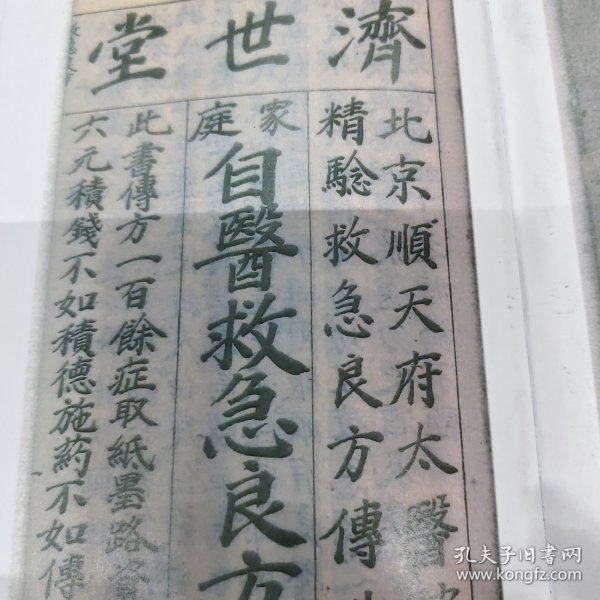 濟世堂
北京順天府太醫
精驗救急良方傳
家庭
自醫救急良方
此書傳方一百餘症取紙墨路
六元積錢不如積德施葯不如傳
孔夫子旧书网
www.kongfz.com